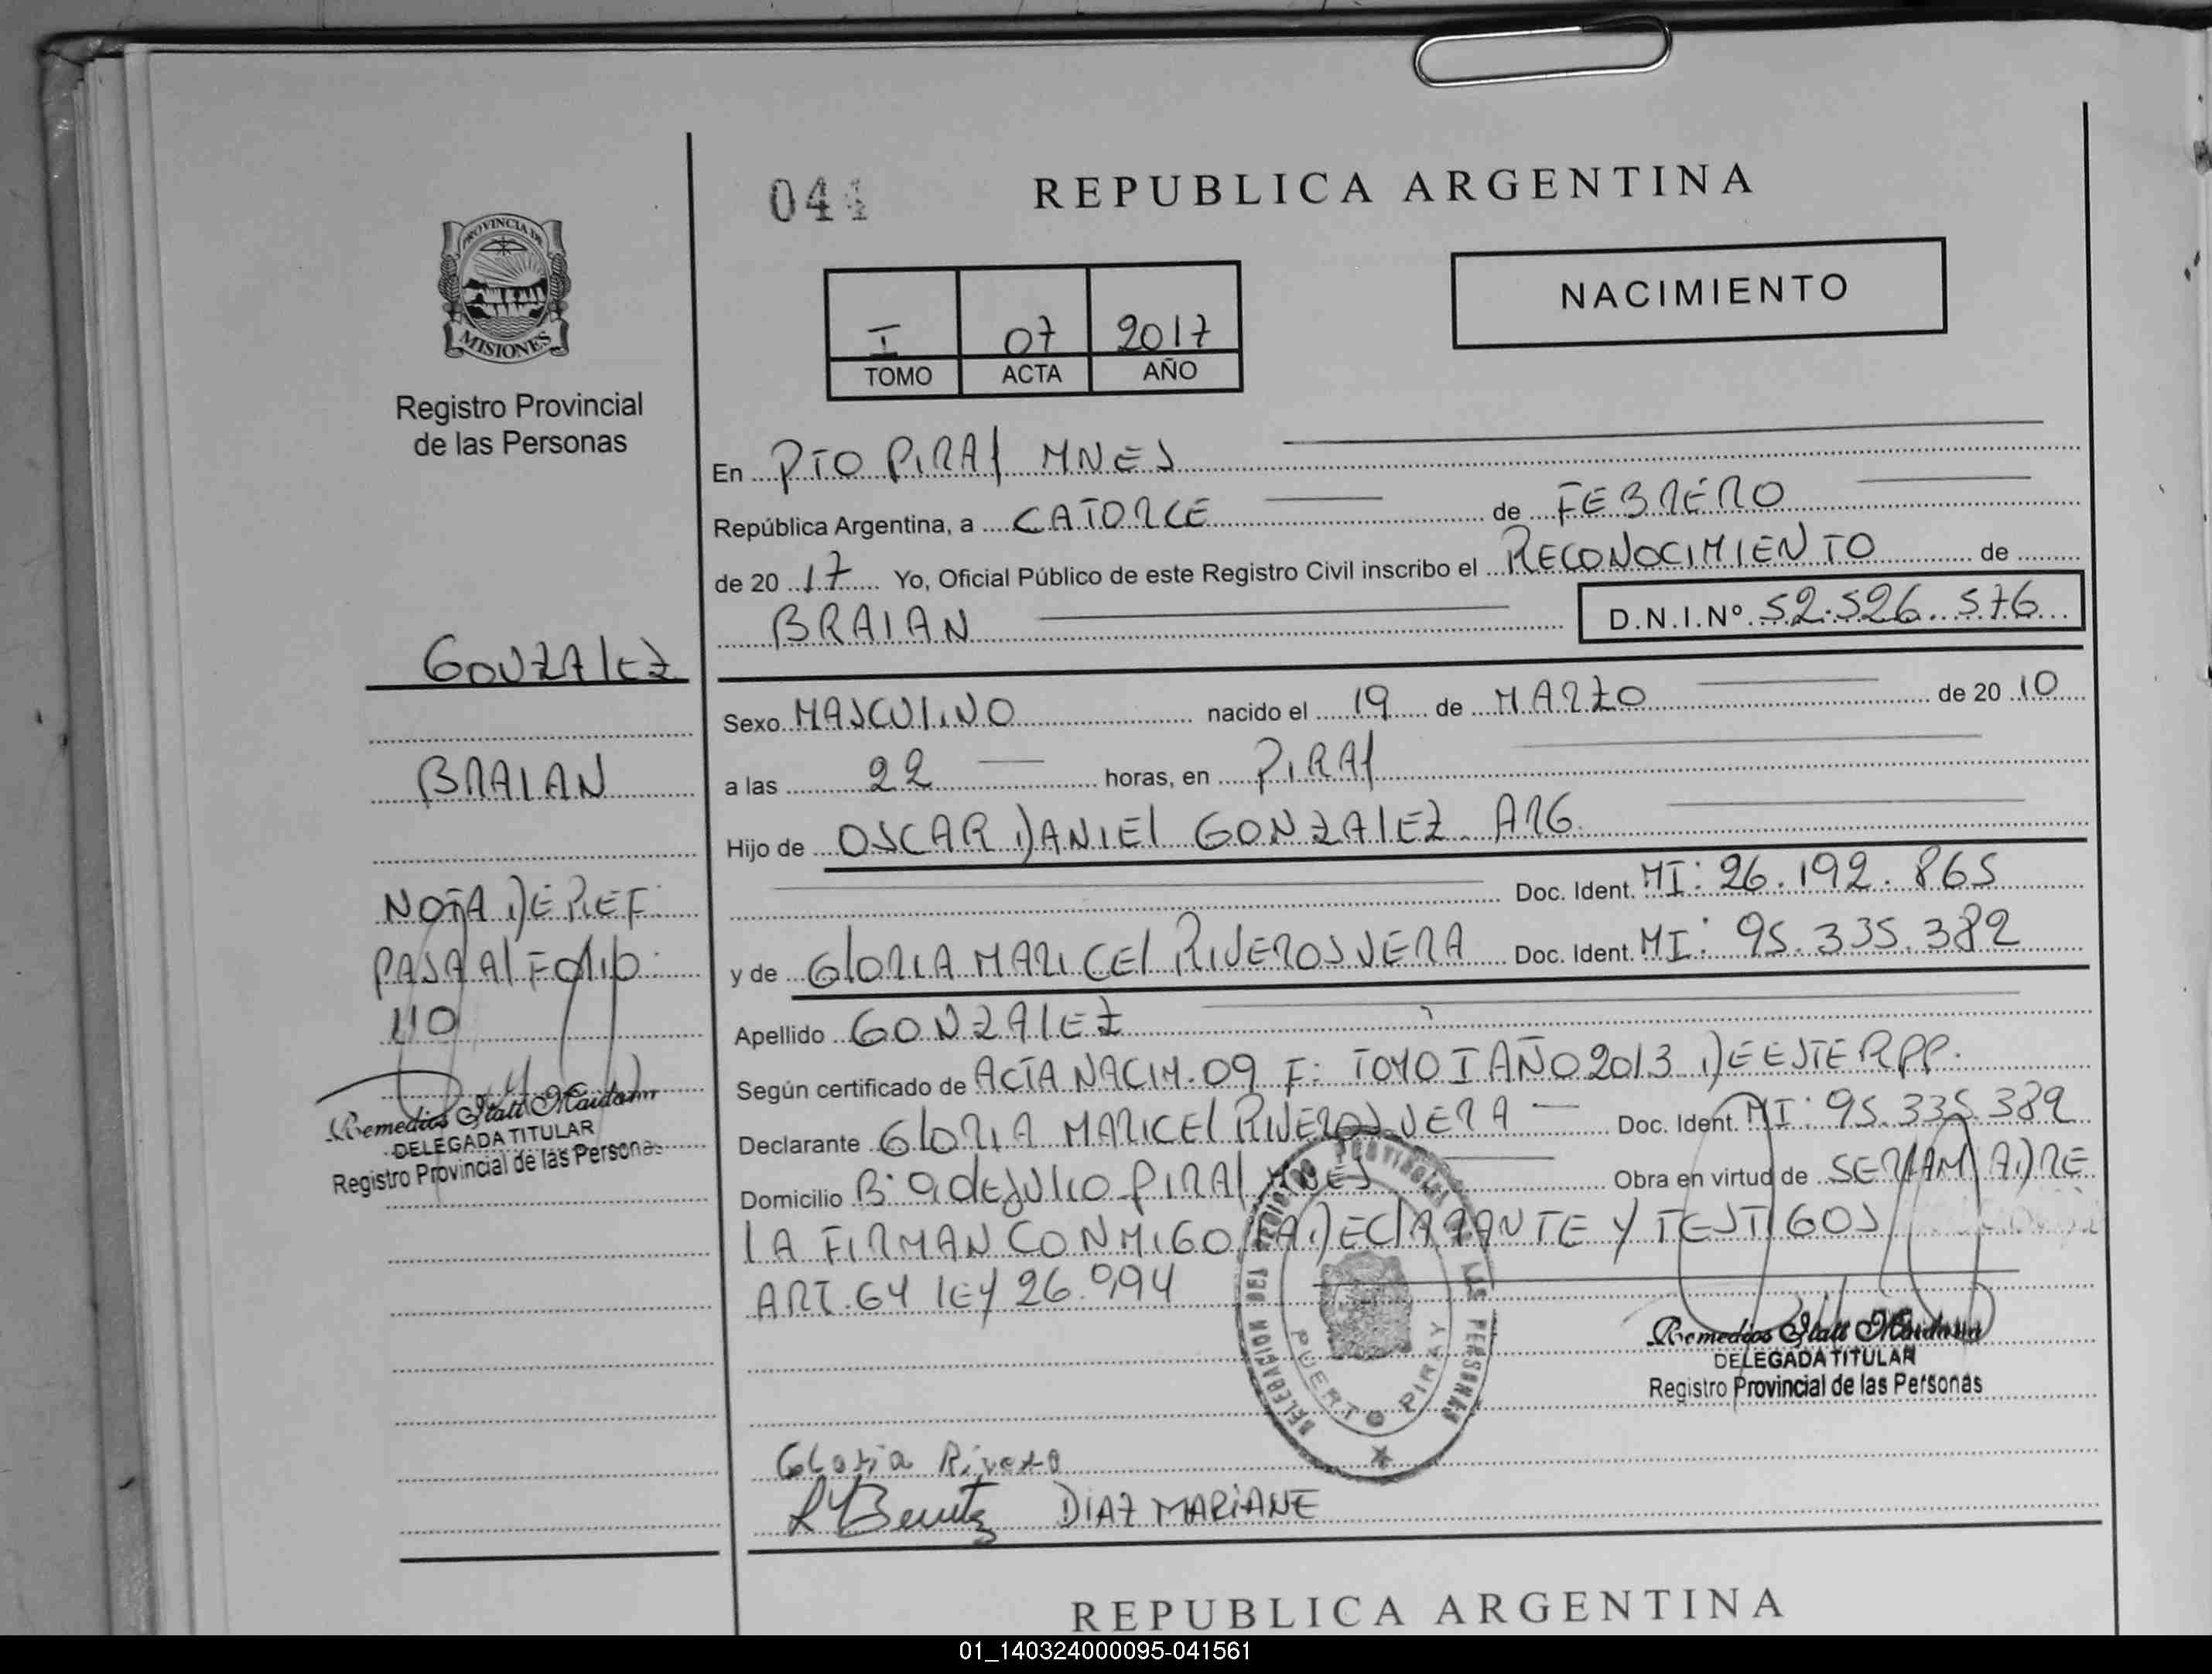 044
REPUBLICA ARGENTINA
NACIMIENTO
PROVINCIA DE
MISIONES
Registro Provincial
de las Personas
I 07 2017
TOMO ACTA AÑO
En PTO PIRAY MNES
República Argentina, a CATORCE de FEBRERO
de 20 17 Yo, Oficial Público de este Registro Civil inscribo el RECONOCIMIENTO de
BRAIAN D.N.I.Nº 52.526.576
Sexo MASCULINO nacido el 19 de MARZO de 20 10
a las 22 horas, en PIRAY
Hijo de OSCAR DANIEL GONZALEZ ARG.
Doc. Ident. MI: 26.192.865
y de GLORIA MARICEL RIVEROS VERA Doc. Ident. MI: 95.335.382
Apellido GONZALEZ
Según certificado de ACTA NACIM. 09 F: TOMO I AÑO 2013 DE ESTE RPP.
Declarante GLORIA MARICEL RIVEROS VERA Doc. Ident. MI: 95.335.382
Domicilio Bº 9 DE JULIO PIRAY MNES Obra en virtud de SER LA MADRE
LA FIRMAN CONMIGO LA DECLARANTE Y TESTIGOS
ART. 64 LEY 26.994
GONZALEZ
BRAIAN
NOTA DE REF:
PASA AL FOLIO:
110
Remedios Itatí Maidana
DELEGADA TITULAR
Registro Provincial de las Personas
DELEGACION DEL REGISTRO PROVINCIAL DE LAS PERSONAS
PUERTO PIRAY
Remedios Itatí Maidana
DELEGADA TITULAR
Registro Provincial de las Personas
Gloria Rivero
Benitez DIAZ MARIANE
REPUBLICA ARGENTINA
01_140324000095-041561